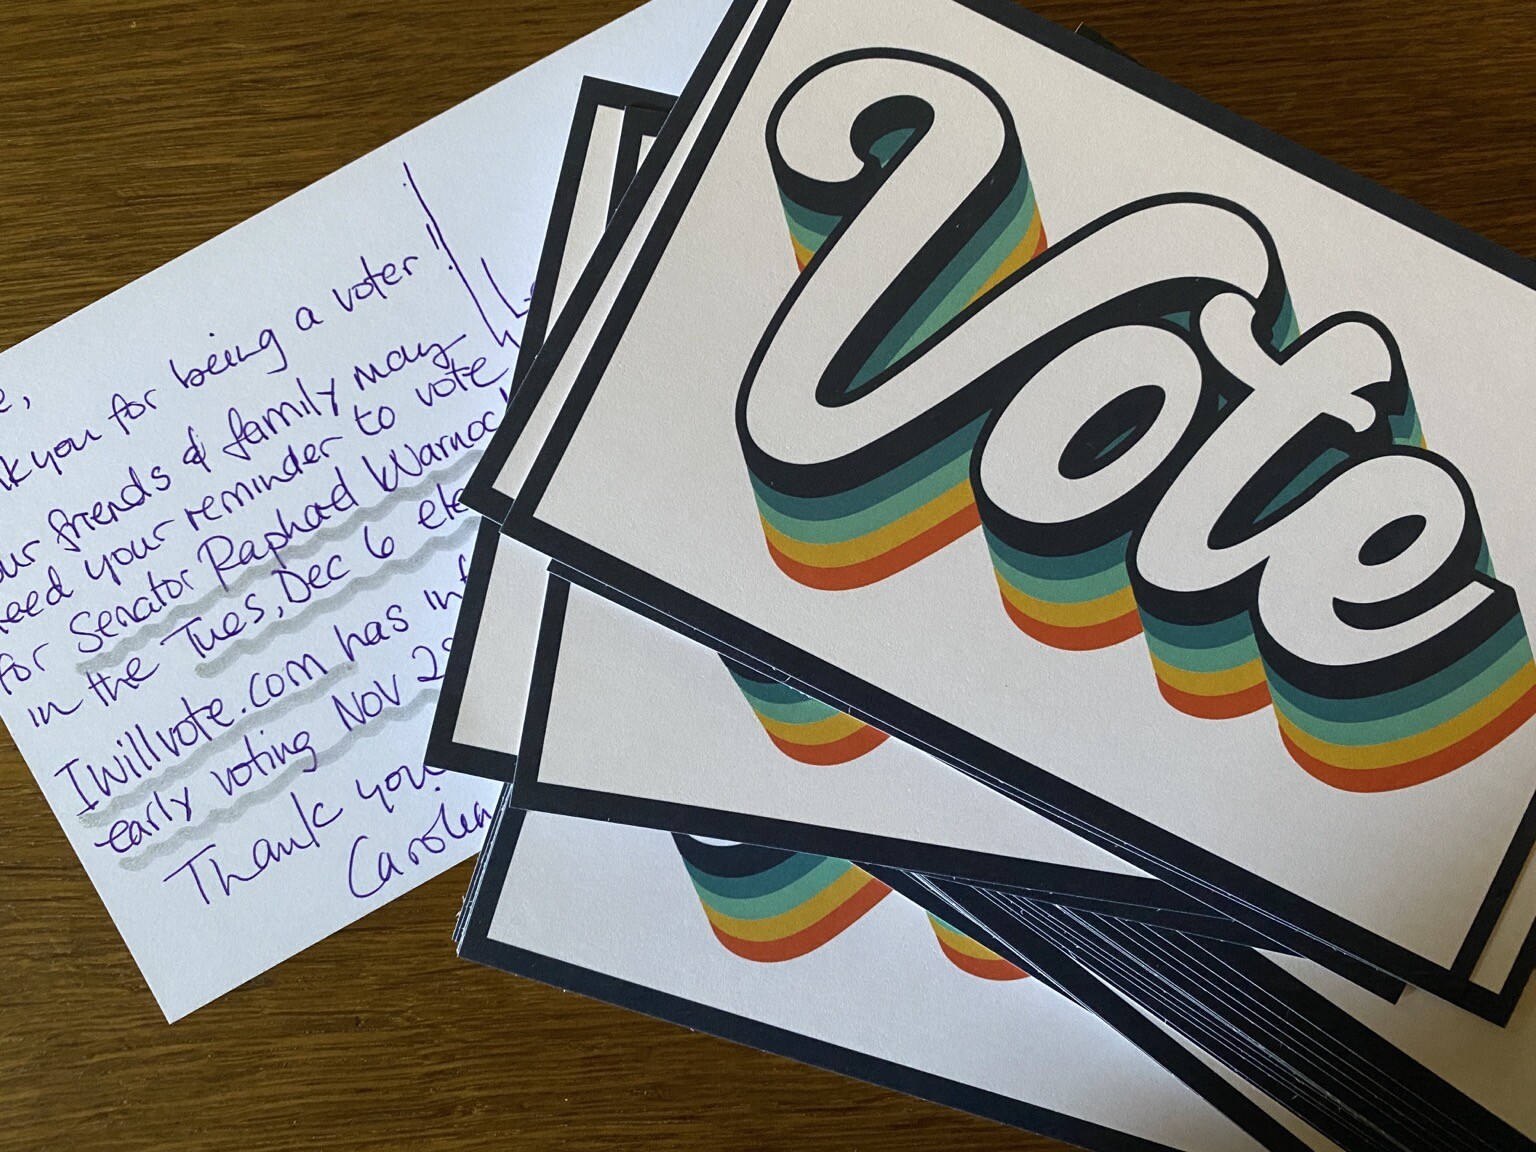 e,
kyou for being a voter!!
our friends & family may
need your reminder to vote
for Senator Raphael Warnoc
in the Tues, Dec 6 ele
Iwillvote.com has inf
early voting Nov 2
Thank you
Carolin
Vote